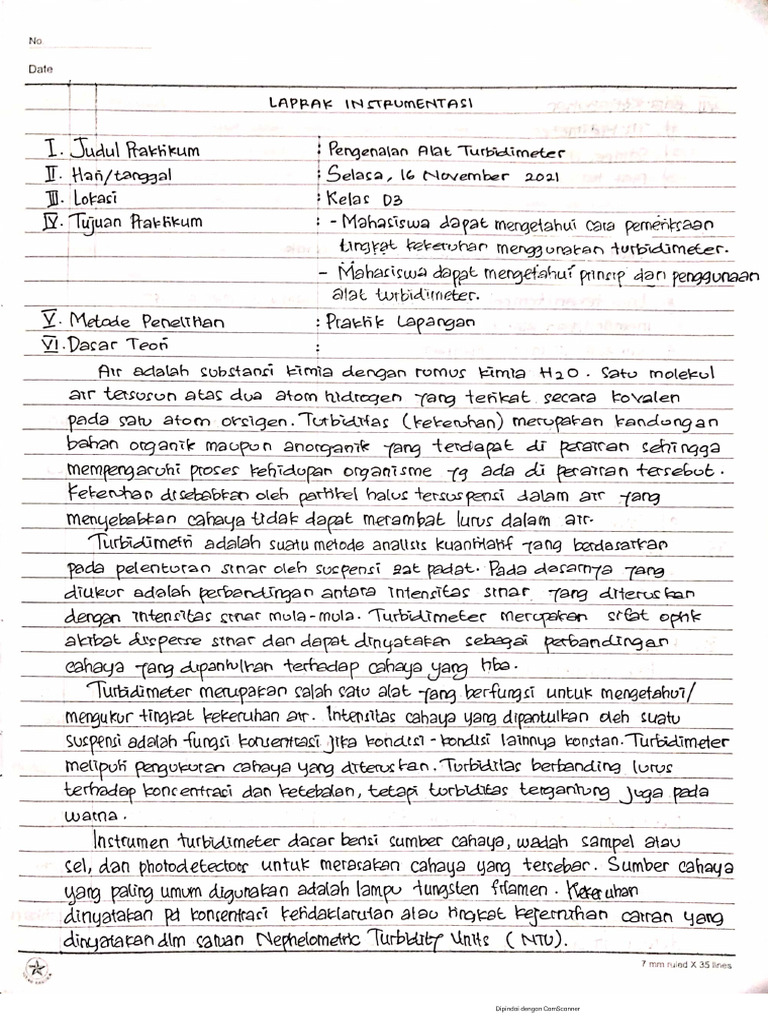 No.
Date
LAPRAK INSTRUMENTASI
I. Judul Praktikum : Pengenalan Alat Turbidimeter
II. Hari/tanggal : Selasa, 16 November 2021
III. Lokasi : Kelas D3
IV. Tujuan Praktikum : - Mahasiswa dapat mengetahui cara pemeriksaan
tingkat kekeruhan menggunakan turbidimeter.
- Mahasiswa dapat mengetahui prinsip dari penggunaan
alat turbidimeter.
V. Metode Penelitian : Praktik Lapangan
VI. Dasar Teori :
Air adalah substansi kimia dengan rumus kimia H2O. Satu molekul
air tersusun atas dua atom hidrogen yang terikat secara kovalen
pada satu atom orsigen. Turbiditas (kekeruhan) merupakan kandungan
bahan organik maupun anorganik yang terdapat di perairan sehingga
mempengaruhi proses kehidupan organisme yg ada di perairan tersebut.
Kekeruhan disebabkan oleh partikel halus tersuspensi dalam air yang
menyebabkan cahaya tidak dapat merambat lurus dalam air.
Turbidimetri adalah suatu metode analisis kuantitatif yang berdasarkan
pada pelenturan sinar oleh suspensi zat padat. Pada dasarnya yang
diukur adalah perbandingan antara intensitas sinar yang diteruskan
dengan intensitas sinar mula-mula. Turbidimeter merupakan sifat optik
akibat dispersi sinar dan dapat dinyatakan sebagai perbandingan
cahaya yang dipantulkan terhadap cahaya yang tiba.
Turbidimeter merupakan salah satu alat yang berfungsi untuk mengetahui/
mengukur tingkat kekeruhan air. Intensitas cahaya yang dipantulkan oleh suatu
suspensi adalah fungsi konsentrasi jika kondisi-kondisi lainnya konstan. Turbidimeter
meliputi pengukuran cahaya yang diteruskan. Turbiditas berbanding lurus
terhadap koncentrasi dan ketebalan, tetapi turbiditas tergantung juga pada
warna.
Instrumen turbidimeter dasar berisi sumber cahaya, wadah sampel atau
sel, dan photodetectors untuk merasakan cahaya yang tersebar. Sumber cahaya
yang paling umum digunakan adalah lampu tungsten filamen. Kekeruhan
dinyatakan pd konsentrasi ketidaklarutan atau tingkat kejernihan cairan yang
dinyatakan dlm satuan Nephelometric Turbidity Units (NTU).
7 mm ruled X 35 lines
Dipindai dengan CamScanner